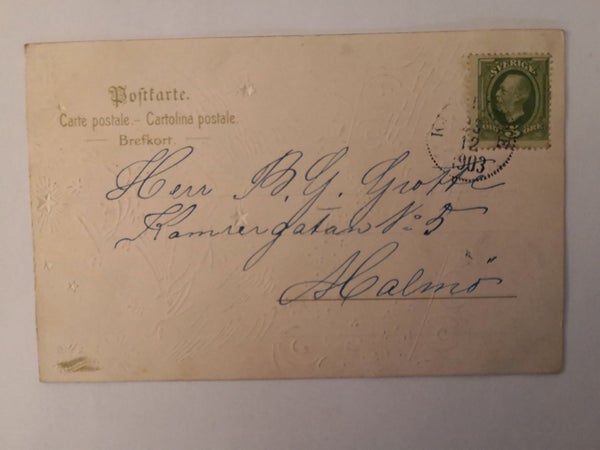 Postkarte.
Carte postale.- Cartolina postale.
Brefkort.
SVERIGE
5 ÖRE
12
1903
Herr B. G. Grotte
Kamrergatan No 5
Malmö